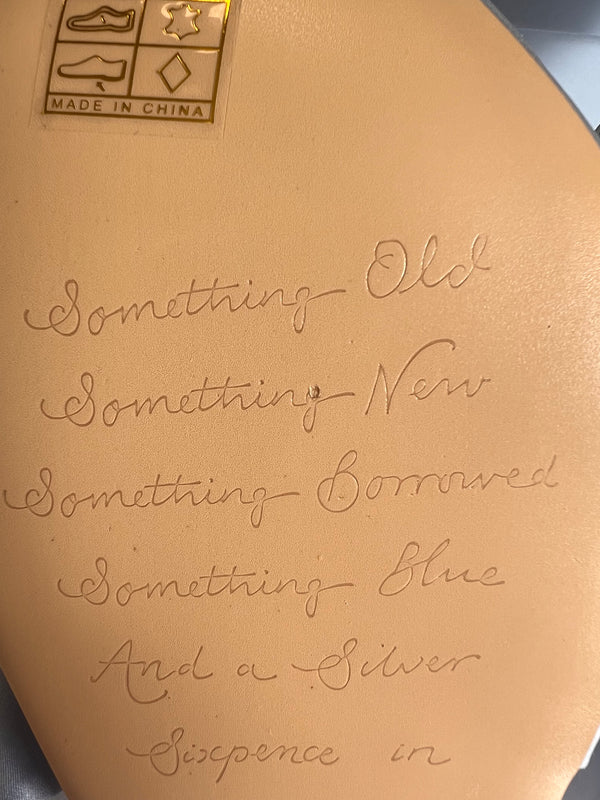 MADE IN CHINA
Something Old
Something New
Something Borrowed
Something Blue
And a Silver
Sixpence in